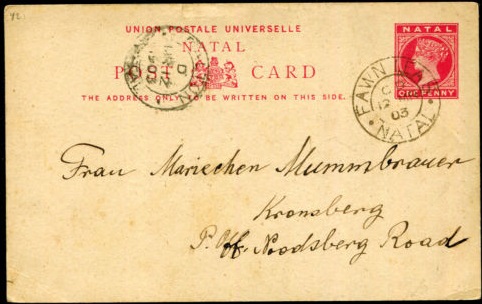 42.
UNION POSTALE UNIVERSELLE
NATAL
POST CARD
THE ADDRESS ONLY TO BE WRITTEN ON THIS SIDE.
NATAL
ONE PENNY
FAWN
C
12
03
NATAL
D
Frau Marieschen Mummbrauer
Kronsberg
P. Off. Noodsberg Road